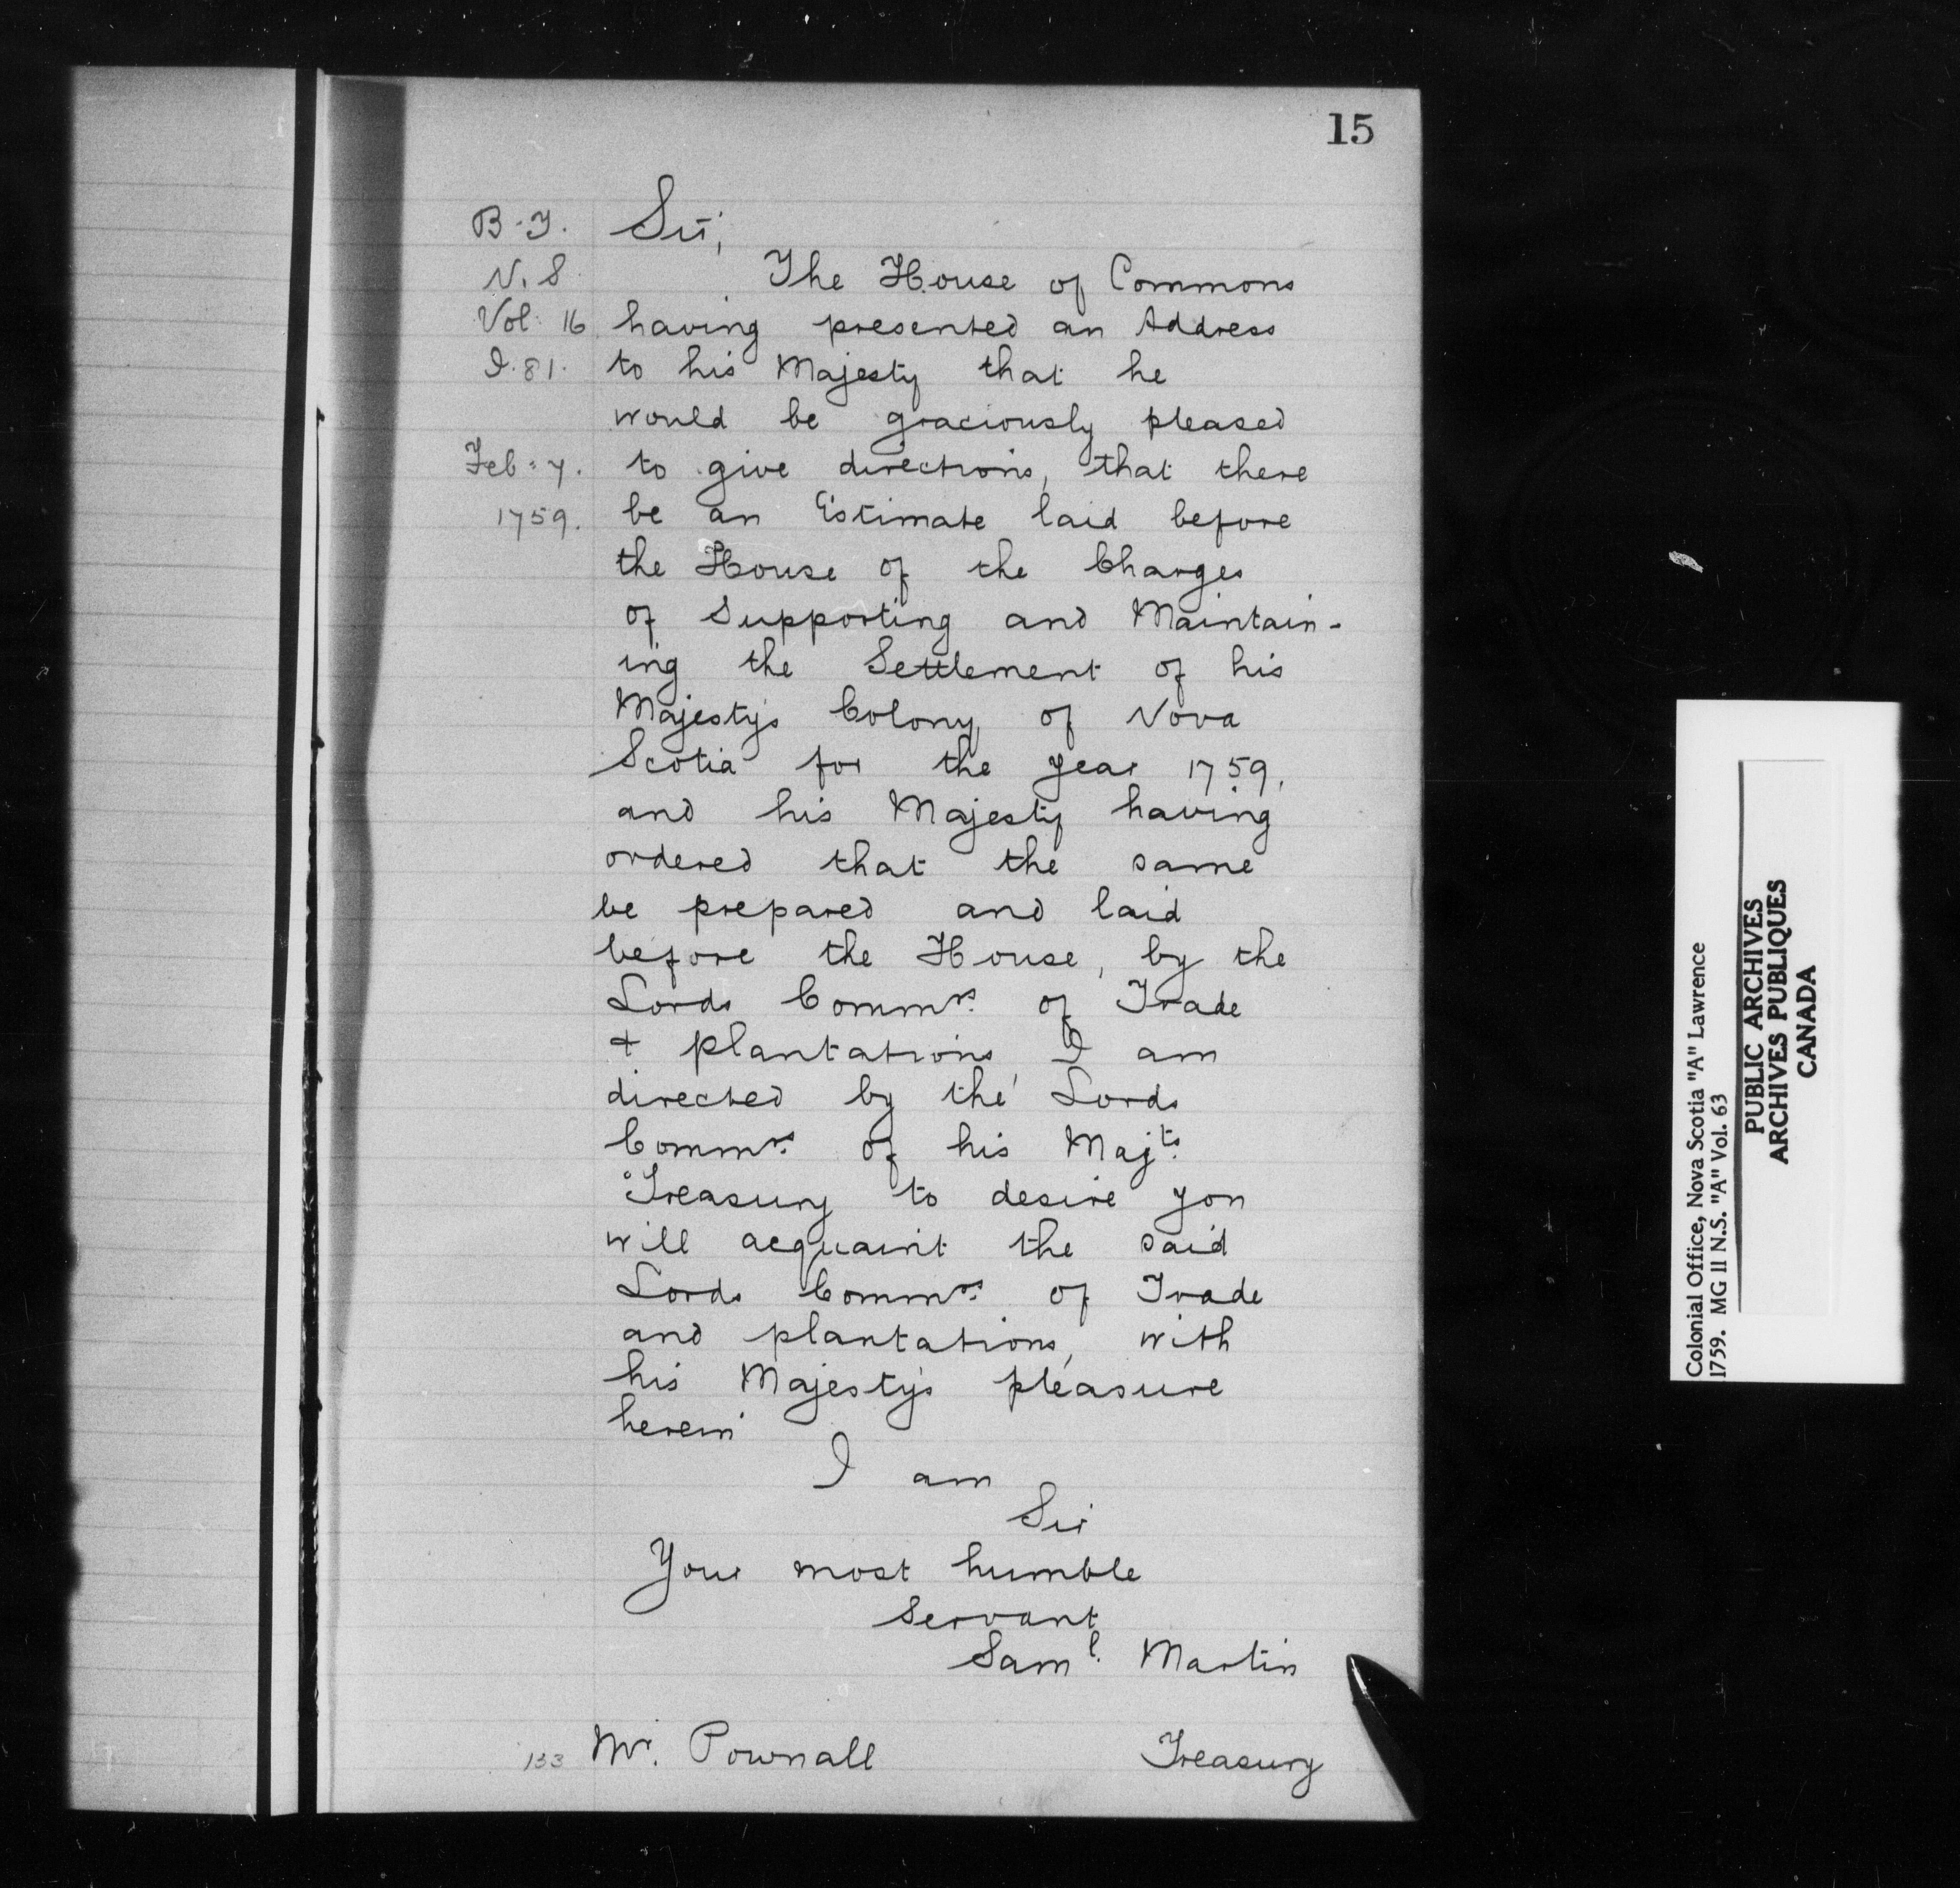 15
B.T.
N.S
Vol. 16
I.81.
Feb: 7.
1759.
Sir,
The House of Commons
having presented an Address
to his Majesty that he
would be graciously pleased
to give directions, that there
be an Estimate laid before
the House of the Charges
of Supporting and Maintain-
ing the Settlement of his
Majesty's Colony of Nova
Scotia for the year 1759,
and his Majesty having
ordered that the same
be prepared and laid
before the House, by the
Lords Commrs. of Trade
+ plantations, I am
directed by the Lords
Commrs. of his Majts.
Treasury to desire you
will acquaint the said
Lords Commrs. of Trade
and plantations, with
his Majesty's pleasure
herein
I am
Sir
Your most humble
Servant
Saml. Martin
133 Mr. Pownall Treasury
Colonial Office, Nova Scotia "A" Lawrence
1759. MG 11 N.S. "A" Vol. 63
PUBLIC ARCHIVES
ARCHIVES PUBLIQUES
CANADA